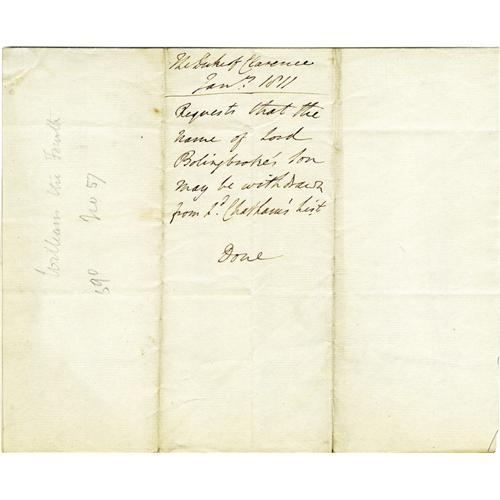 The Duke of Clarence
Jany. 1811
Requests that the
name of Lord
Bolingbroke's Son
may be withdrawn
from Ld. Chatham's list
Done
William the Fourth
No 57